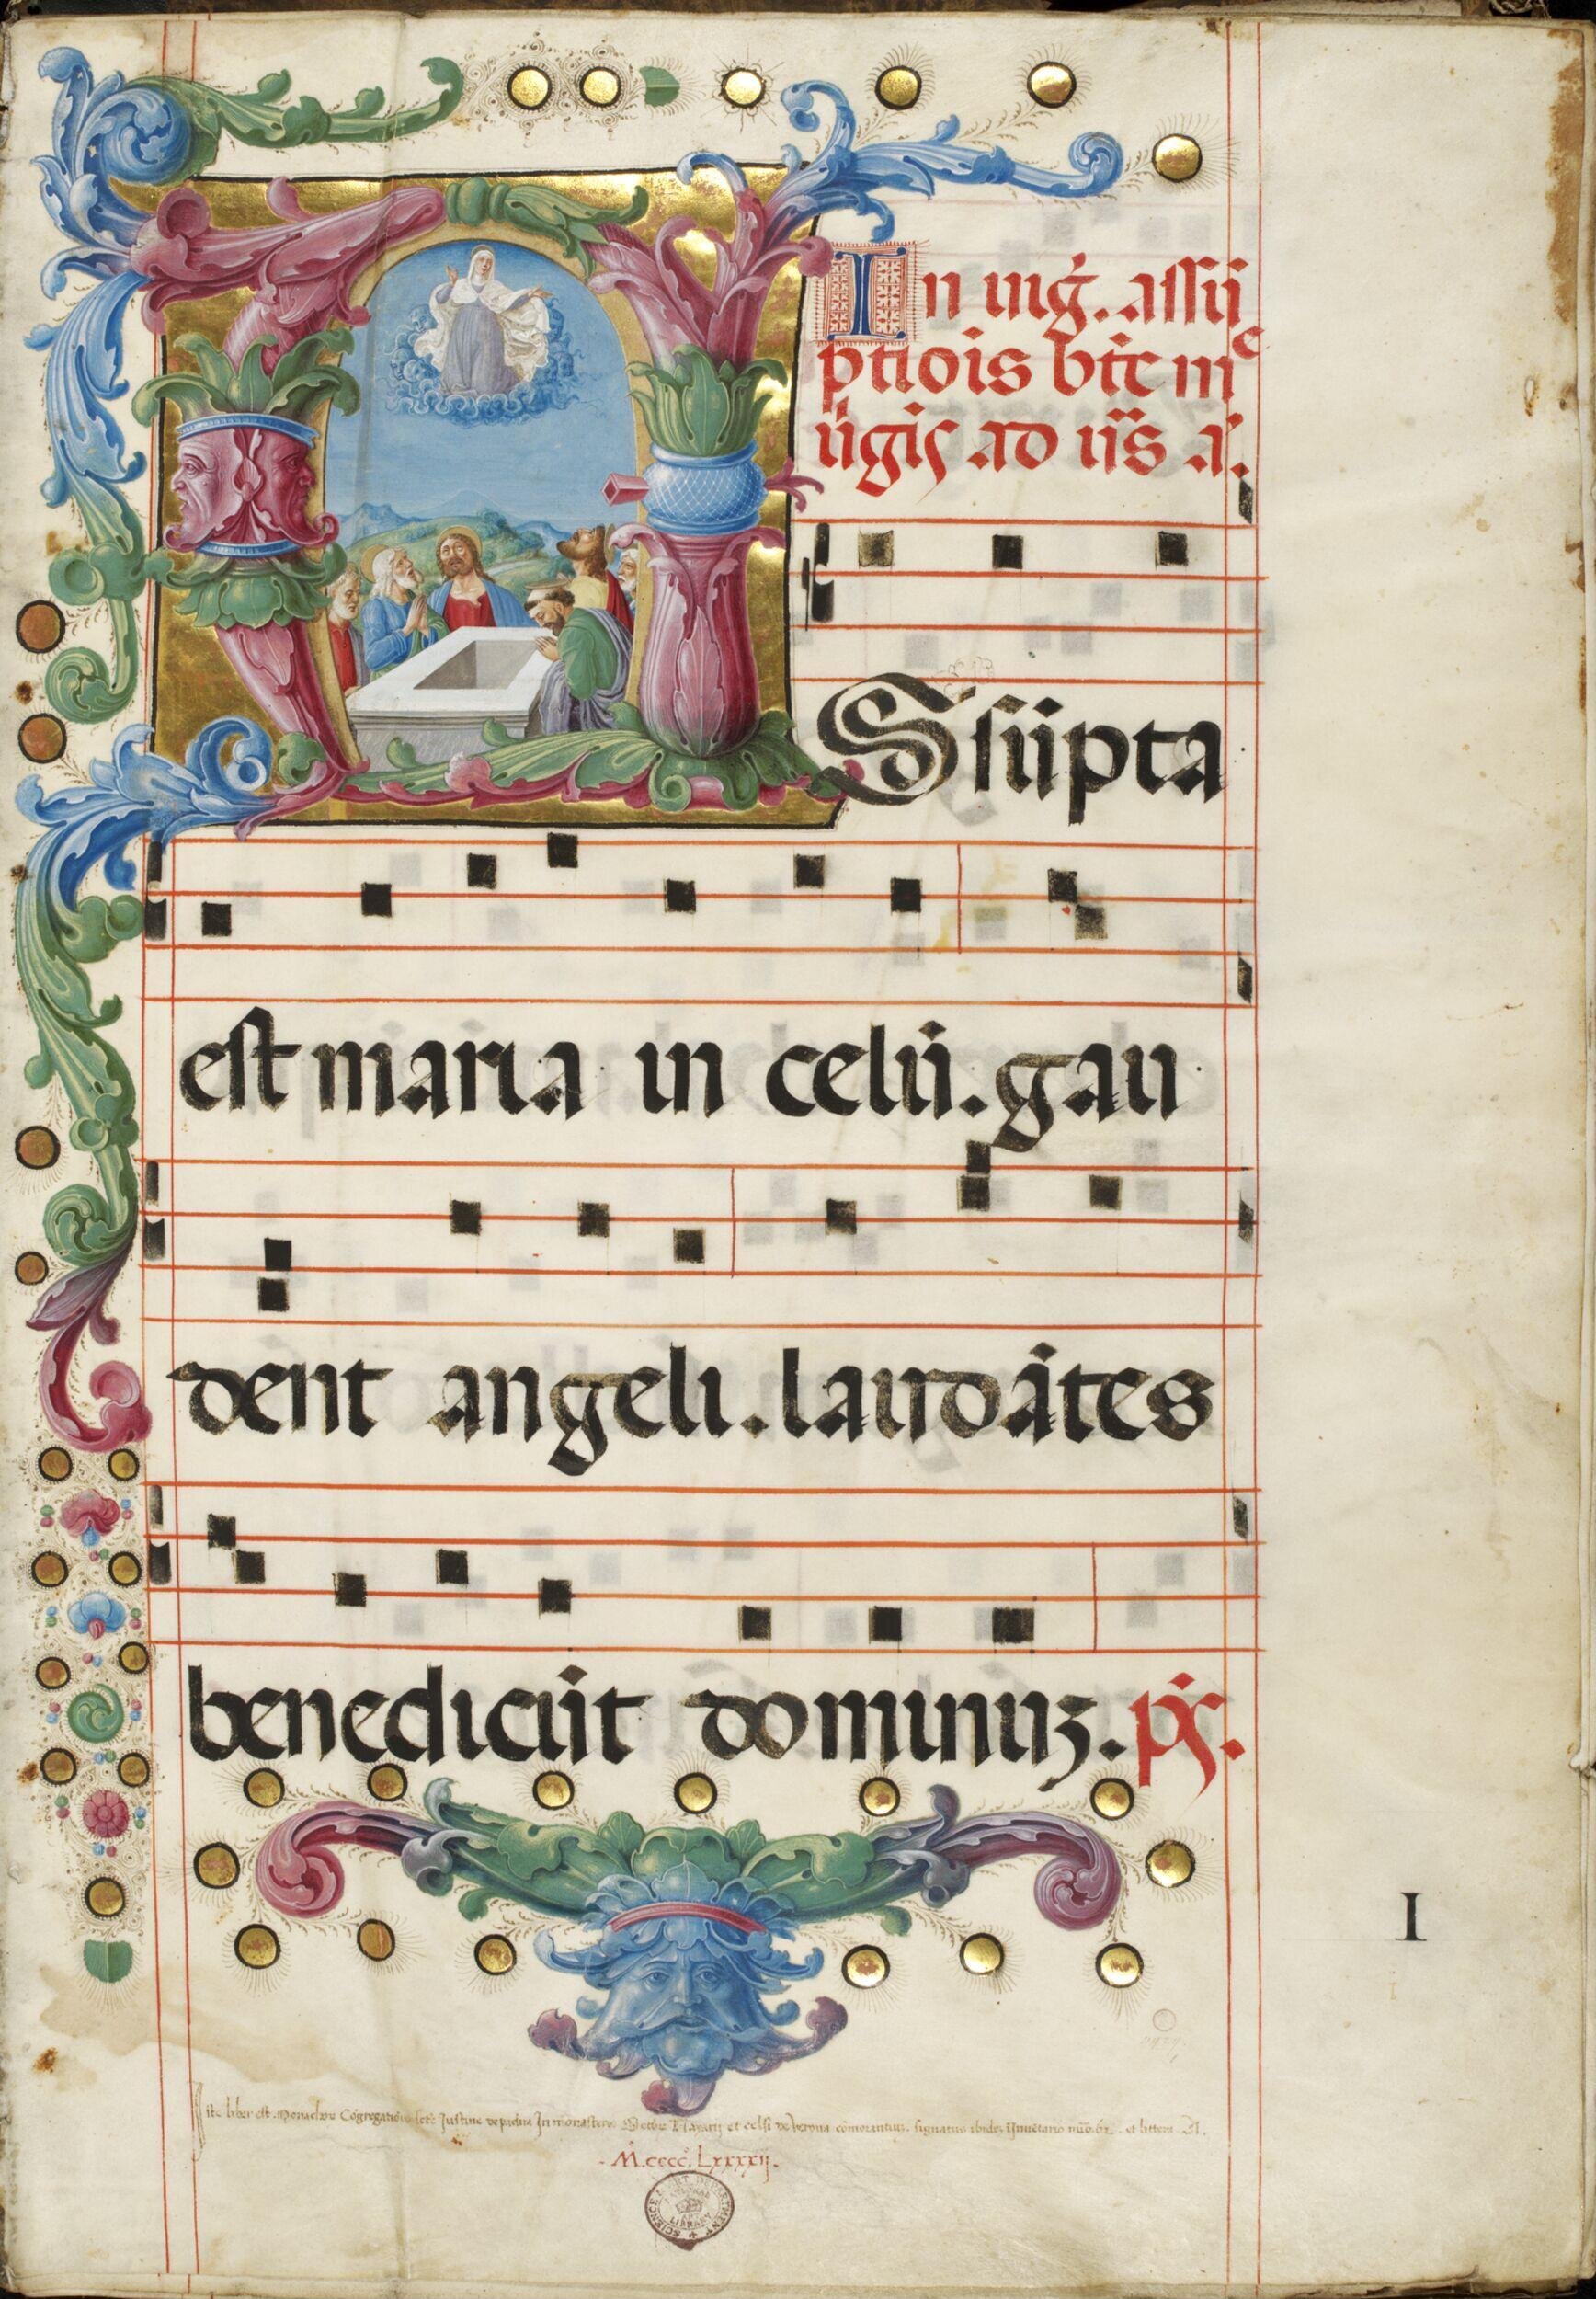 In uig̓. assū
ptiōis bt̄e m̄ᶜ
ūgis ad ūs a͂.
Ssūpta
est maria in celū. gau
dent angeli. laudātes
benedicūt dominuꝫ. ps̄.
I
Iste liber est Monachorum Cōgregationis scē Justine de padua In monasterio Sctōrum Nazarij et celsi de Verona cōmorantium. signatus ibidem Inuētario nūo 61. et littera A.
M. cccc. Lxxxxij.
SCIENCE & ART DEPARTMENT
LIBRARY